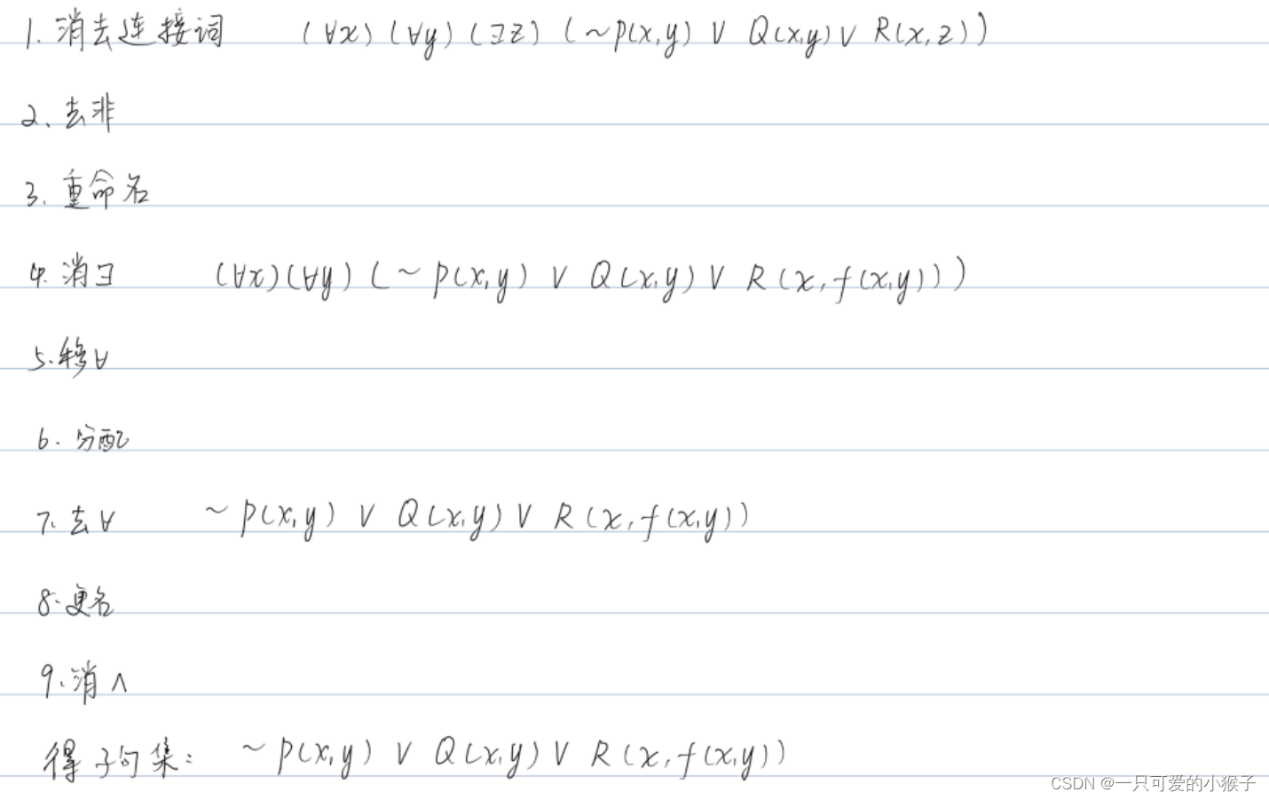 1. 消去连接词 (∀x)(∀y)(∃z)(~P(x,y) ∨ Q(x,y) ∨ R(x,z))
2. 去非
3. 重命名
4. 消∃ (∀x)(∀y)(~P(x,y) ∨ Q(x,y) ∨ R(x,f(x,y)))
5. 移∀
6. 分配
7. 去∀ ~P(x,y) ∨ Q(x,y) ∨ R(x,f(x,y))
8. 更名
9. 消∧
得子句集: ~P(x,y) ∨ Q(x,y) ∨ R(x,f(x,y))
CSDN @一只可爱的小猴子